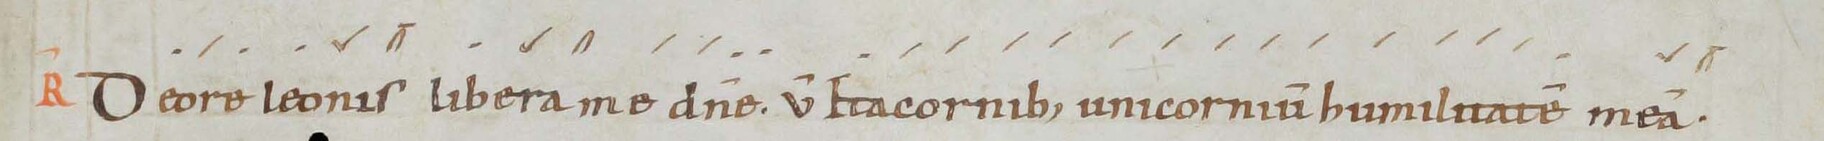 R̄ Deore leonis libera me dñe. v̄ Et a cornib; unicorniū humilitatē meā.